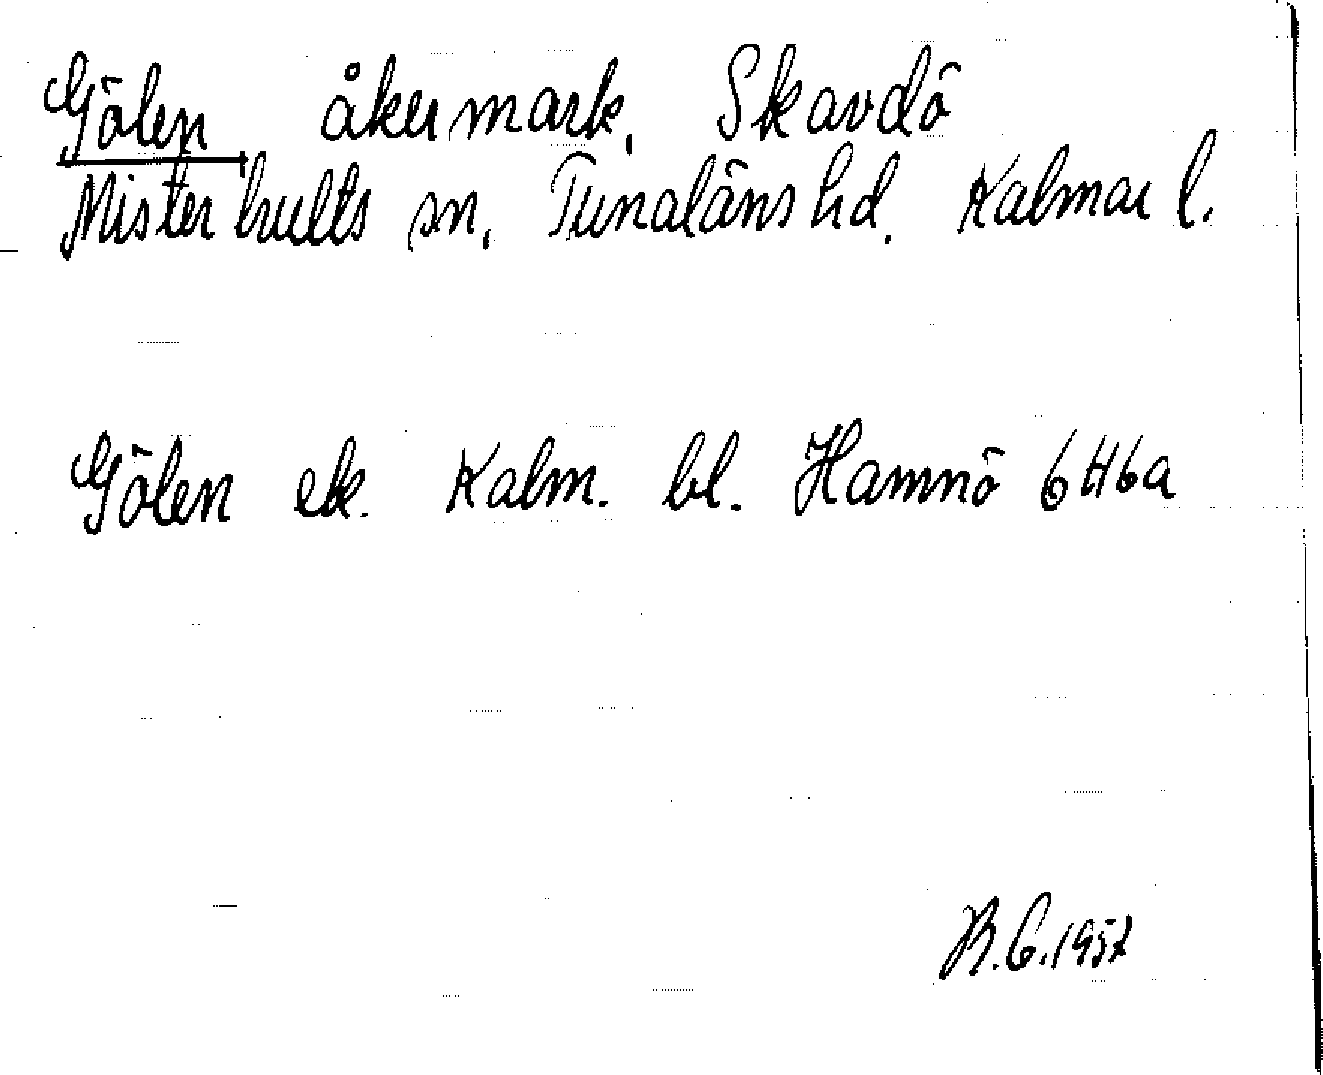 Gölen åkermark, Skavdö
Misterhults sn, Tunaläns hd. Kalmar l.
Gölen ek. Kalm. bl. Hamnö 6H6a
B.C. 1957